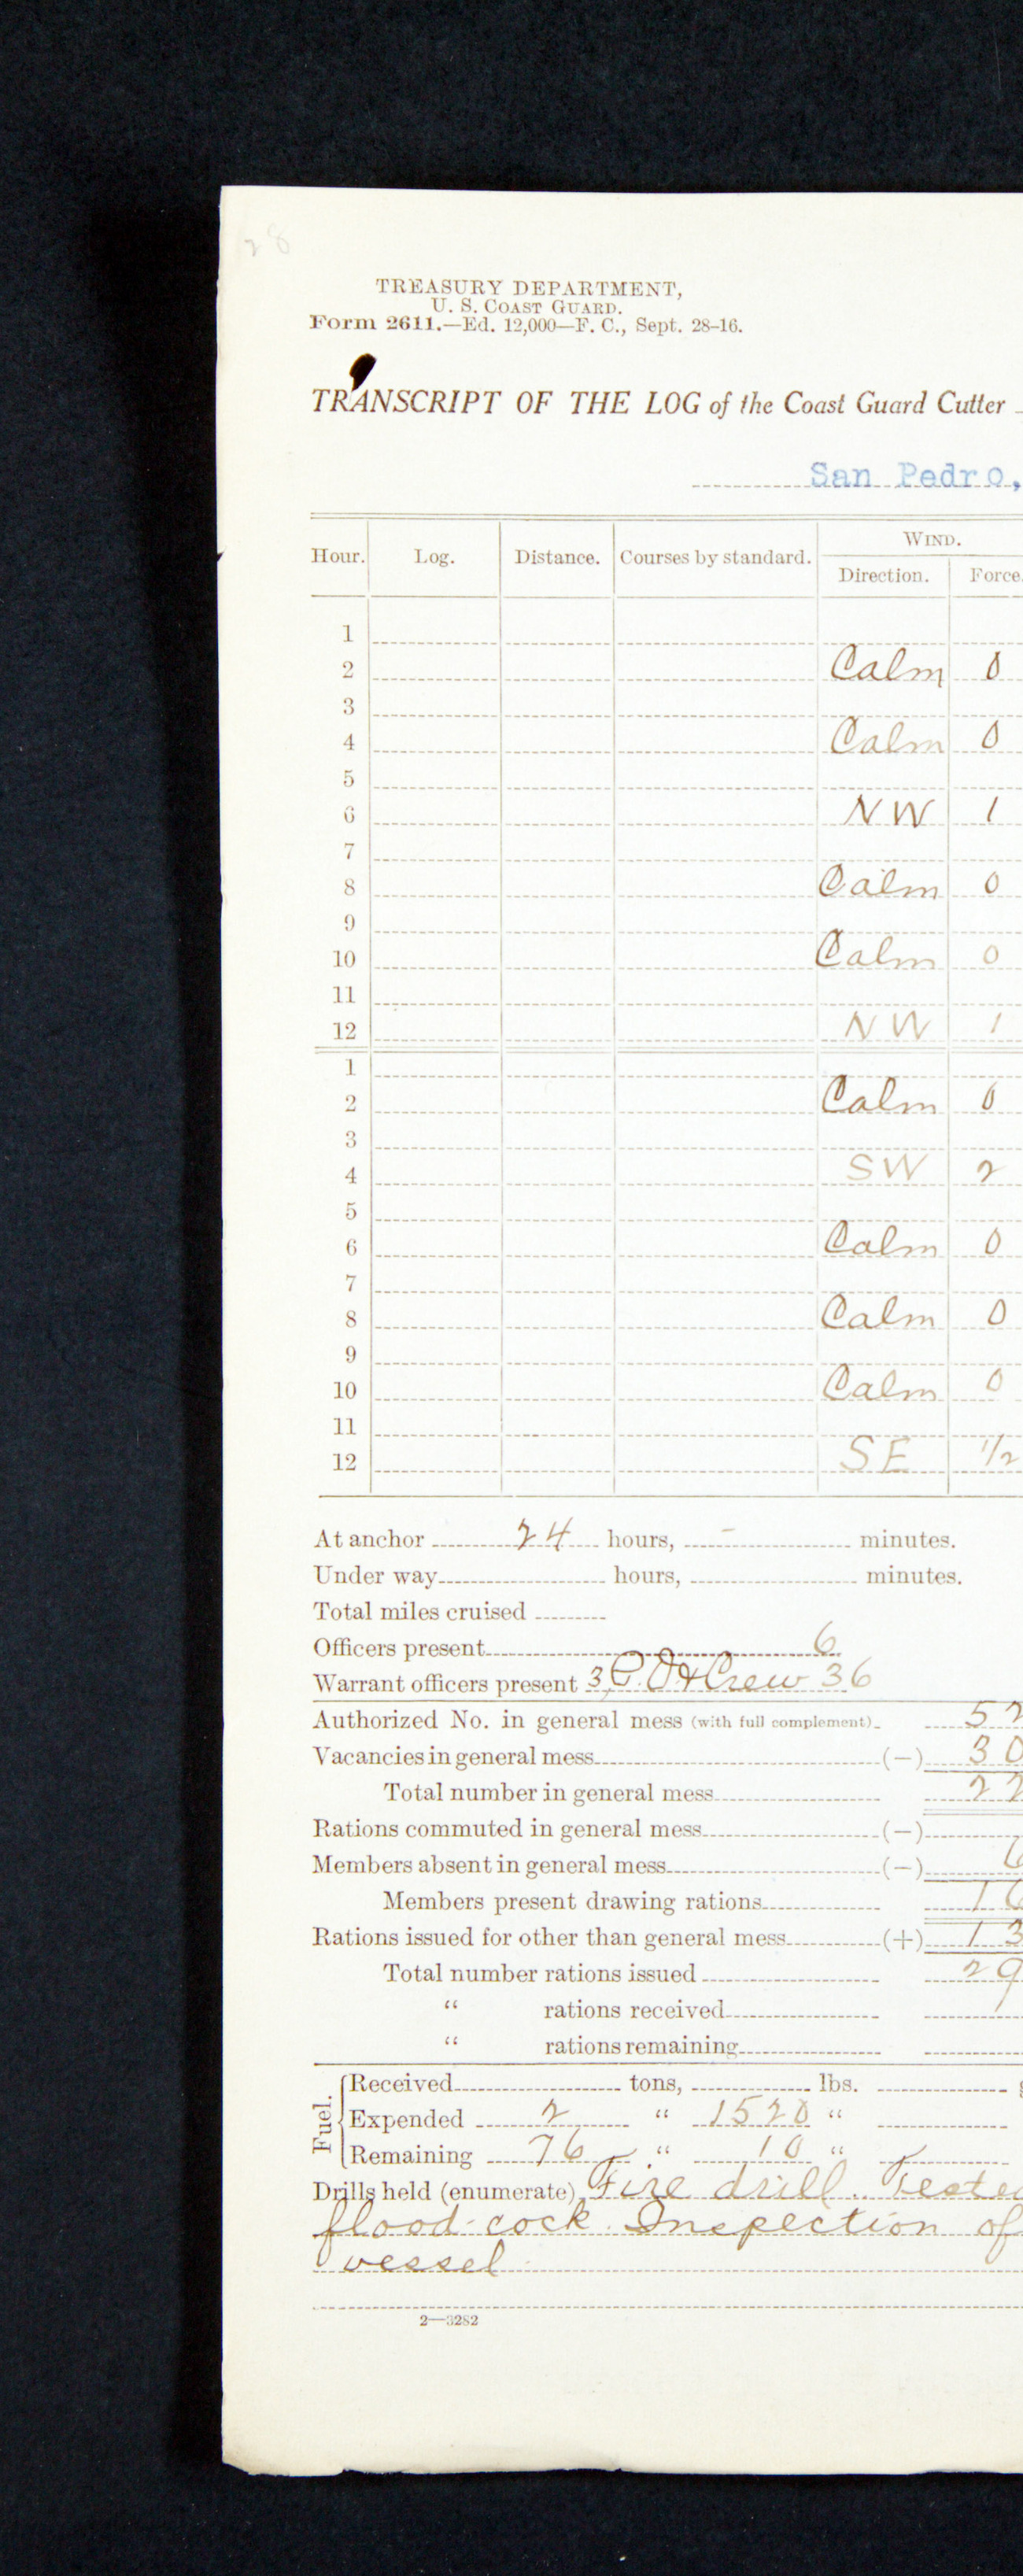 28
TREASURY DEPARTMENT,
U. S. COAST GUARD.
Form 2611.—Ed. 12,000—F. C., Sept. 28-16.
TRANSCRIPT OF THE LOG of the Coast Guard Cutter
San Pedro,
Hour. Log. Distance. Courses by standard. WIND.
Direction. Force.
1
2 Calm 0
3
4 Calm 0
5
6 NW 1
7
8 Calm 0
9
10 Calm 0
11
12 NW 1
1
2 Calm 0
3
4 SW 2
5
6 Calm 0
7
8 Calm 0
9
10 Calm 0
11
12 SE 1/2
At anchor 24 hours, - minutes.
Under way hours, minutes.
Total miles cruised
Officers present 6
Warrant officers present 3, P.O. & Crew 36
Authorized No. in general mess (with full complement) 52
Vacancies in general mess (—) 30
Total number in general mess 22
Rations commuted in general mess (—)
Members absent in general mess (—) 6
Members present drawing rations 16
Rations issued for other than general mess (+) 13
Total number rations issued 29
“ rations received
“ rations remaining
Fuel. Received tons, lbs.
Expended 2 “ 1520 “
Remaining 76 “ 10 “
Drills held (enumerate) Fire drill. Tested
flood-cock. Inspection of
vessel
2—3282